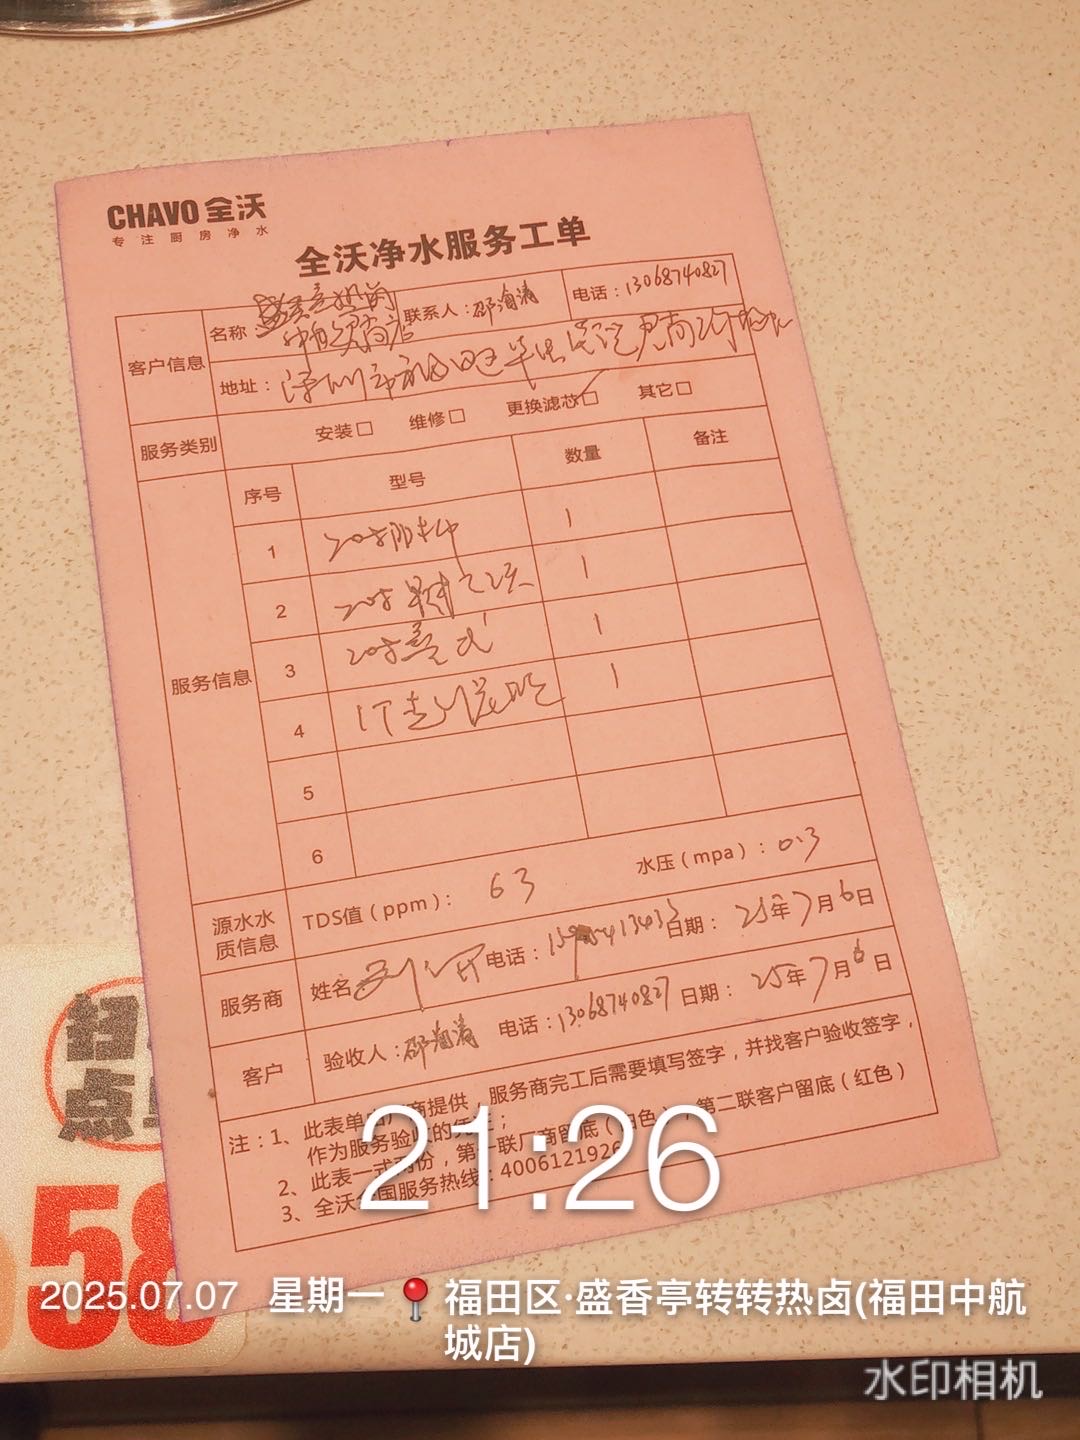 CHAVO 全沃
专注厨房净水
全沃净水服务工单
客户信息
名称：
联系人：邵海涛
电话：13068740827
地址：深圳市福田区华
服务类别
安装□ 维修□ 更换滤芯□ 其它□
服务信息
序号 型号 数量 备注
1 20寸 1
2 20寸 1
3 20寸 1
4 1
5
6
源水水质信息
TDS值（ppm）： 63 水压（mpa）：0.3
服务商
姓名 电话： 日期：25年7月6日
客户
验收人：邵海涛 电话：13068740827 日期：25年7月6日
注：1、此表单由厂商提供，服务商完工后需要填写签字，并找客户验收签字，
作为服务验收的凭证；
2、此表一式两份，第一联厂商留底（白色），第二联客户留底（红色）
3、全沃全国服务热线：4006121926
扫
点
58
21:26
2025.07.07 星期一 福田区·盛香亭转转热卤(福田中航
城店)
水印相机